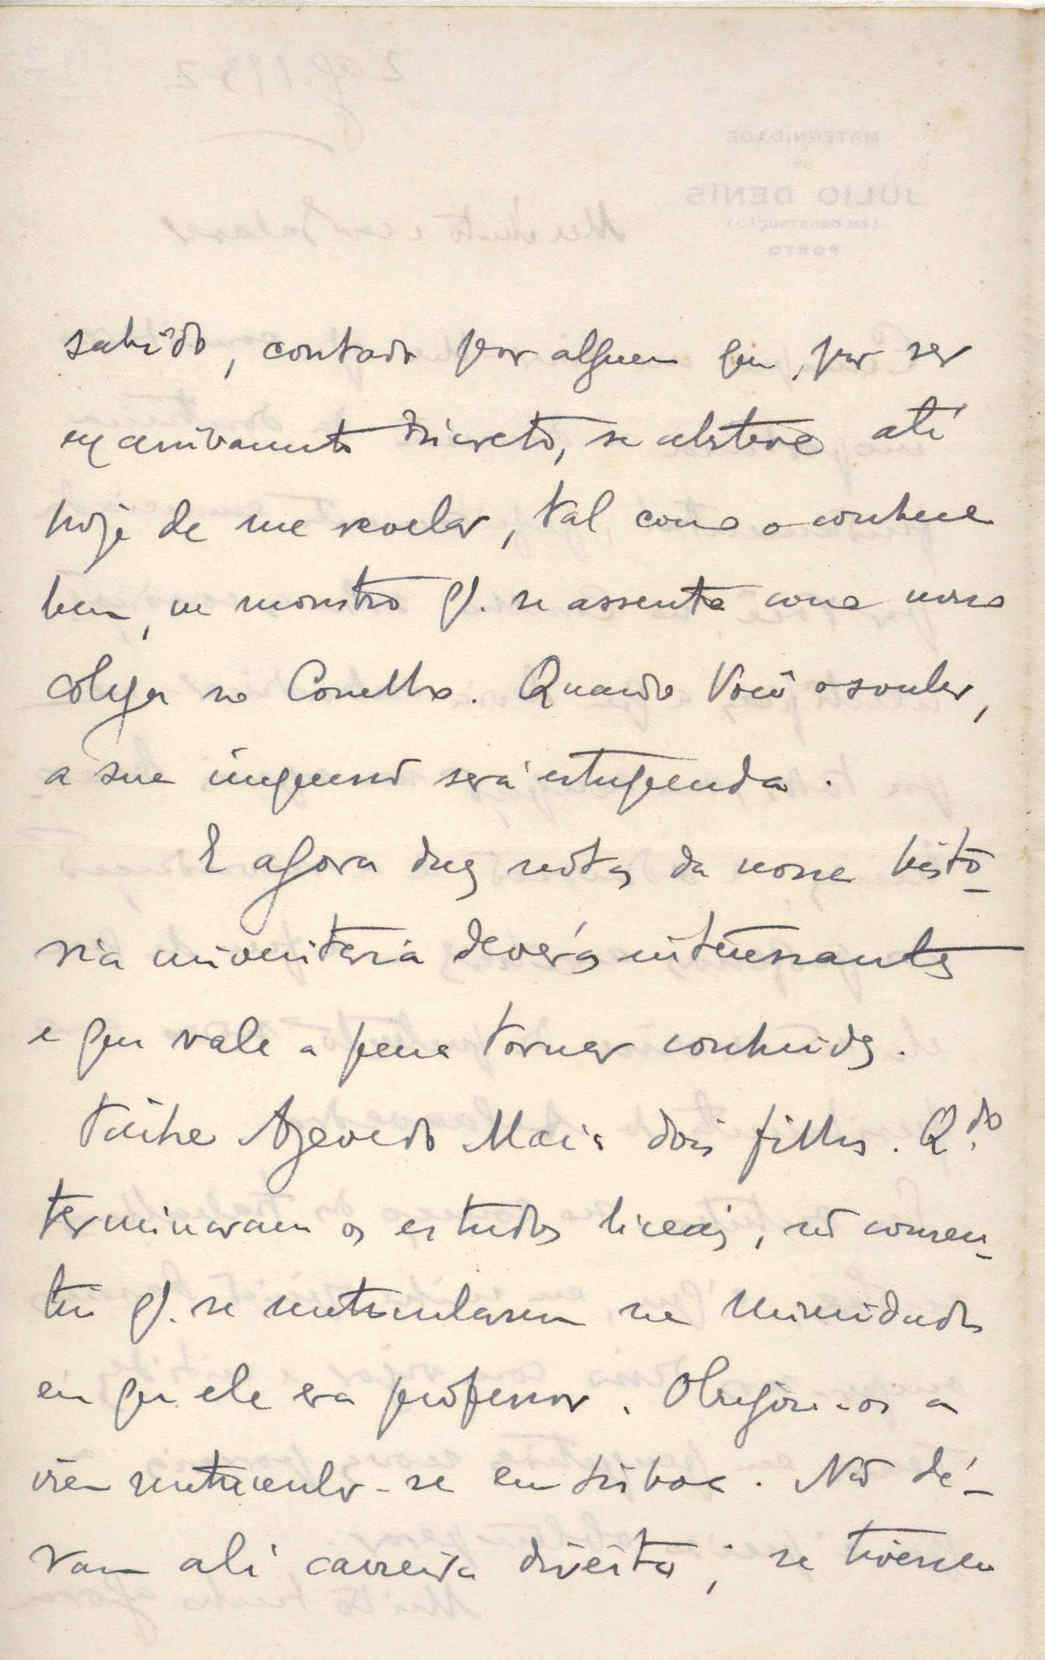 sabido, contado por alguem que, por ser
excessivamente discreto, se absteve até
hoje de me revelar, tal como o conhece
bem, o monstro q. se assenta como nosso
colega no Conselho. Quando Você o souber,
a sua impressão será estupenda.
E agora duas notas da nossa histó-
ria universitaria deveras interessantes
e que vale a pena tornar conhecidas.
Tinha Azevedo Maia dois filhos. Qdo.
terminaram os estudos liceais, não consen-
tiu q. se matriculassem na Universidade
em que ele era professor. Obrigou-os a
virem matricular-se em Lisboa. Não dé-
ram ali carreira direita; se tivessem